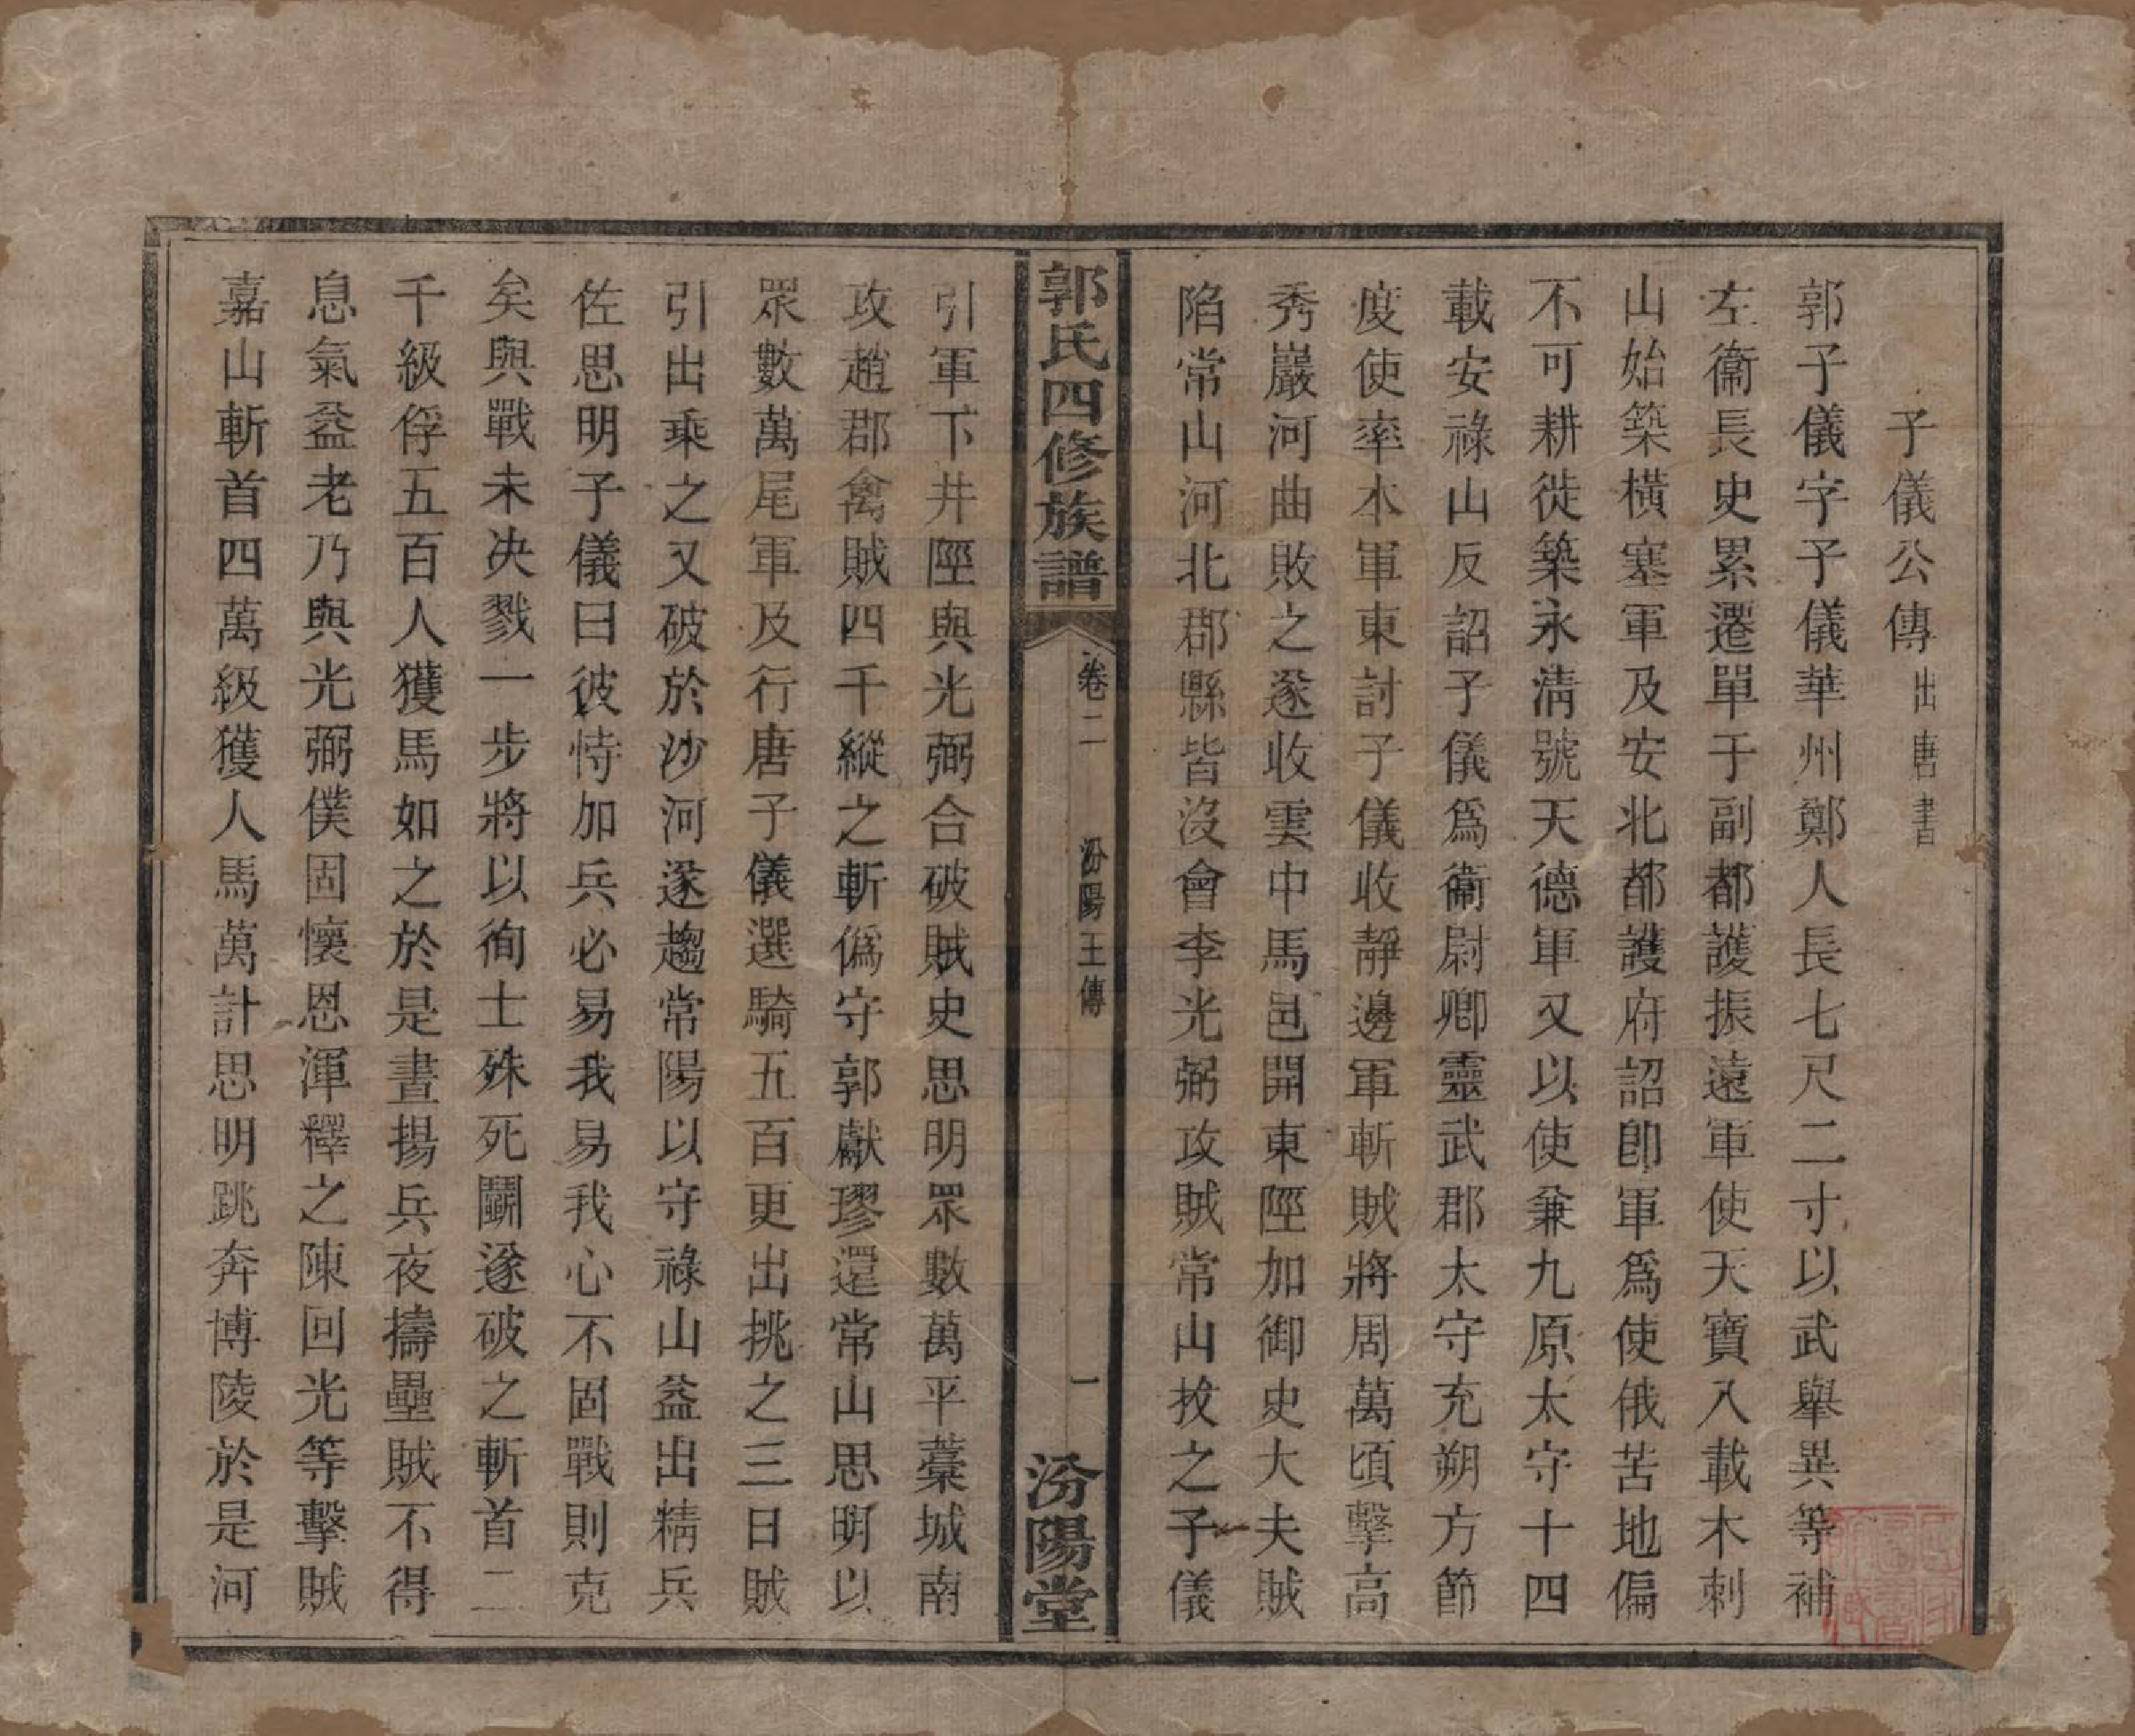 子儀公傳出唐書
郭子儀字子儀華州鄭人長七尺二寸以武舉異等補
左衞長史累遷單于副都護振遠軍使天寶八載木刺
山始築橫塞軍及安北都護府詔卽軍爲使俄苦地偏
不可耕徙築永淸號天德軍又以使兼九原太守十四
載安祿山反詔子儀爲衞尉卿靈武郡太守充朔方節
度使率本軍東討子儀收靜邊軍斬賊將周萬頃擊高
秀巖河曲敗之遂收雲中馬邑開東陘加御史大夫賊
陷常山河北郡縣皆沒會李光弼攻賊常山拔之子儀
郭氏四修族譜
卷二
汾陽王傳
一
汾陽堂
引軍下井陘與光弼合破賊史思明眾數萬平藁城南
攻趙郡禽賊四千縱之斬僞守郭獻璆還常山思明以
眾數萬尾軍及行唐子儀選騎五百更出挑之三日賊
引出乘之又破於沙河遂趨常陽以守祿山益出精兵
佐思明子儀曰彼恃加兵必易我易我心不固戰則克
矣與戰未决戮一步將以徇士殊死鬭遂破之斬首二
千級俘五百人獲馬如之於是晝揚兵夜擣壘賊不得
息氣益老乃與光弼僕固懷恩渾釋之陳回光等擊賊
嘉山斬首四萬級獲人馬萬計思明跳奔博陵於是河